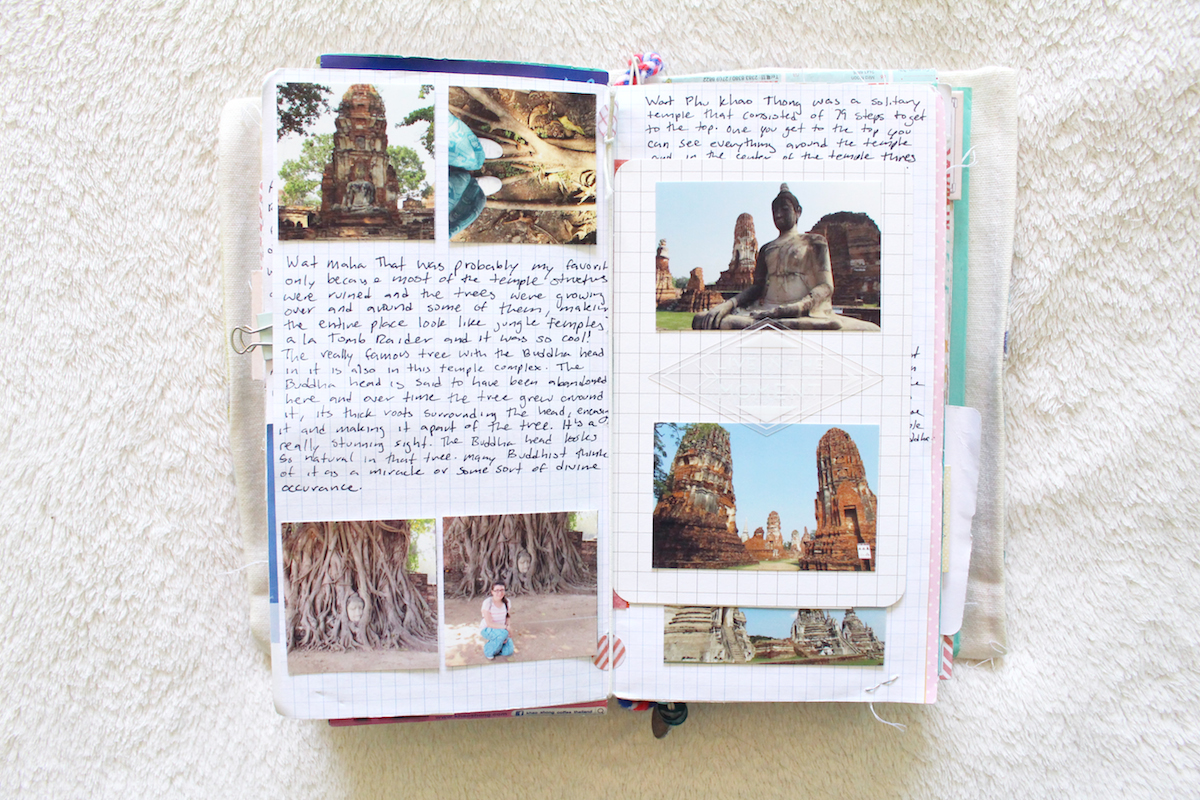 Wat maha That was probably my favorit
only because most of the temple structures
were ruined and the trees were growing
over and around some of them, making
the entire place look like jungle temples
a la Tomb Raider and it was so cool!
The really famous tree with the Buddha head
in it is also in this temple complex. The
Buddha head is said to have been abandoned
here and over time the tree grew around
it, its thick roots surrounding the head, encasing
it and making it apart of the tree. It's a
really stunning sight. The Buddha head looks
so natural in that tree. many Buddhist think
of it as a miracle or some sort of divine
occurance.
Wat Phu Khao Thong was a solitary
temple that consisted of 79 steps to get
to the top. One you get to the top you
can see everything around the temple
and in the center of the temple theres